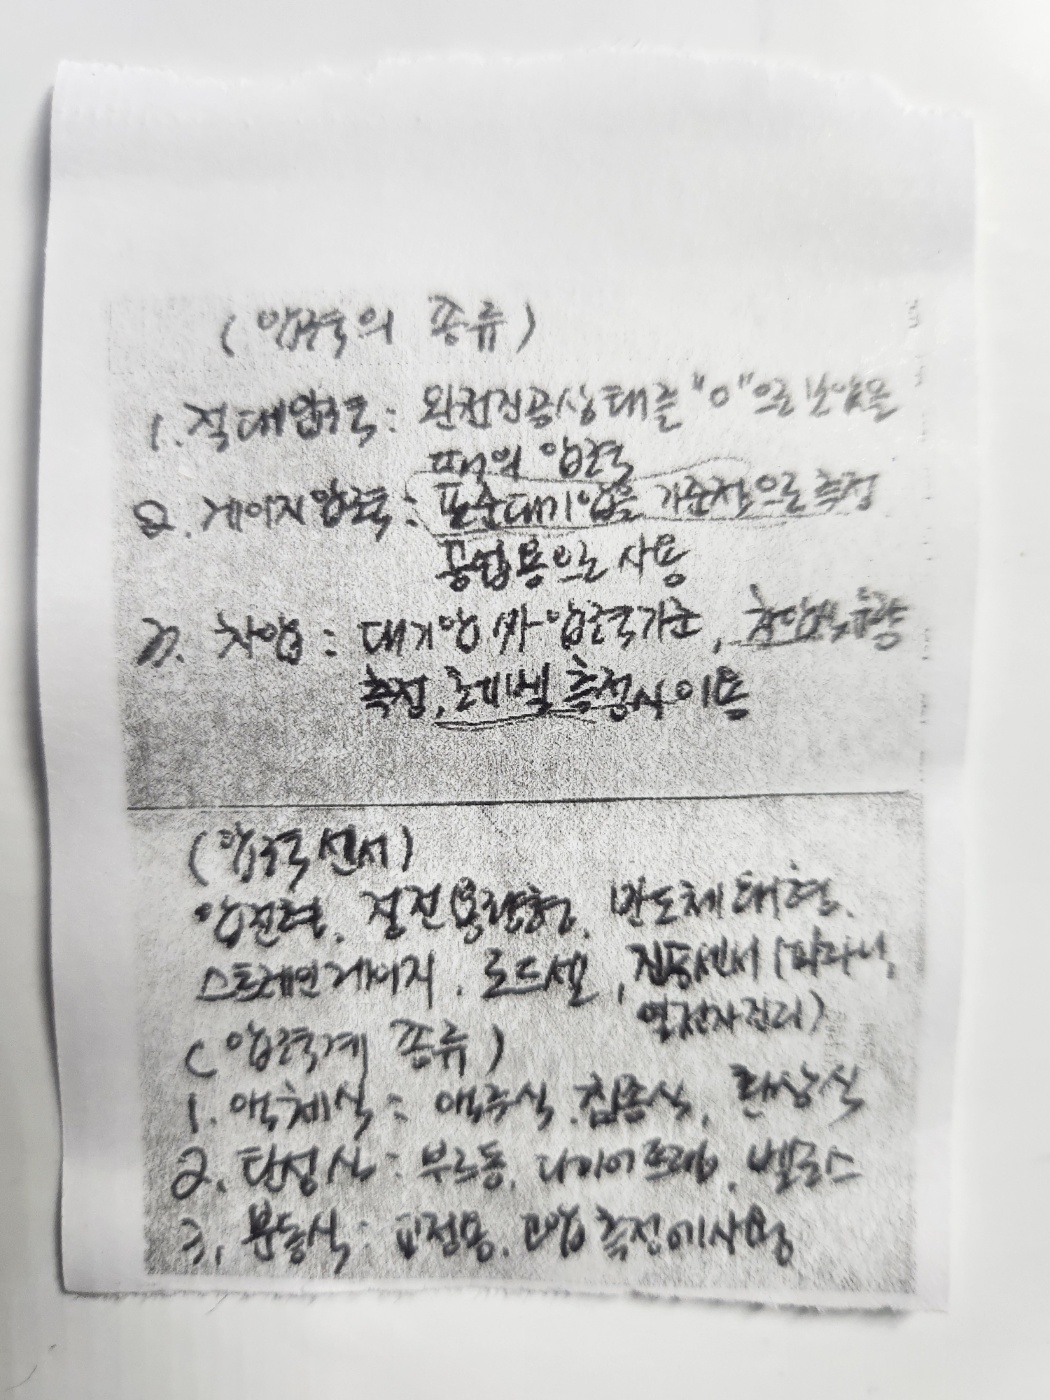 (압력의 종류)
1. 절대압력: 완전진공상태를 "0"으로 보았을
때의 압력
2. 게이지압력: 표준대기압을 기준점으로 측정
공업용으로 사용
3. 차압: 대기압 압력기준, 차압식유량
측정, 레벨 측정시 이용
(압력센서)
압전형, 정전용량형, 반도체
스트레인게이지, 로드셀, 진공센서(피라니,
열전자진리)
(압력계 종류)
1. 액체식: 액주식, 침종식, 환상식
2. 탄성식: 부르동, 다이어프램, 벨로스
3. 분동식: 교정용, 고압 측정에사용